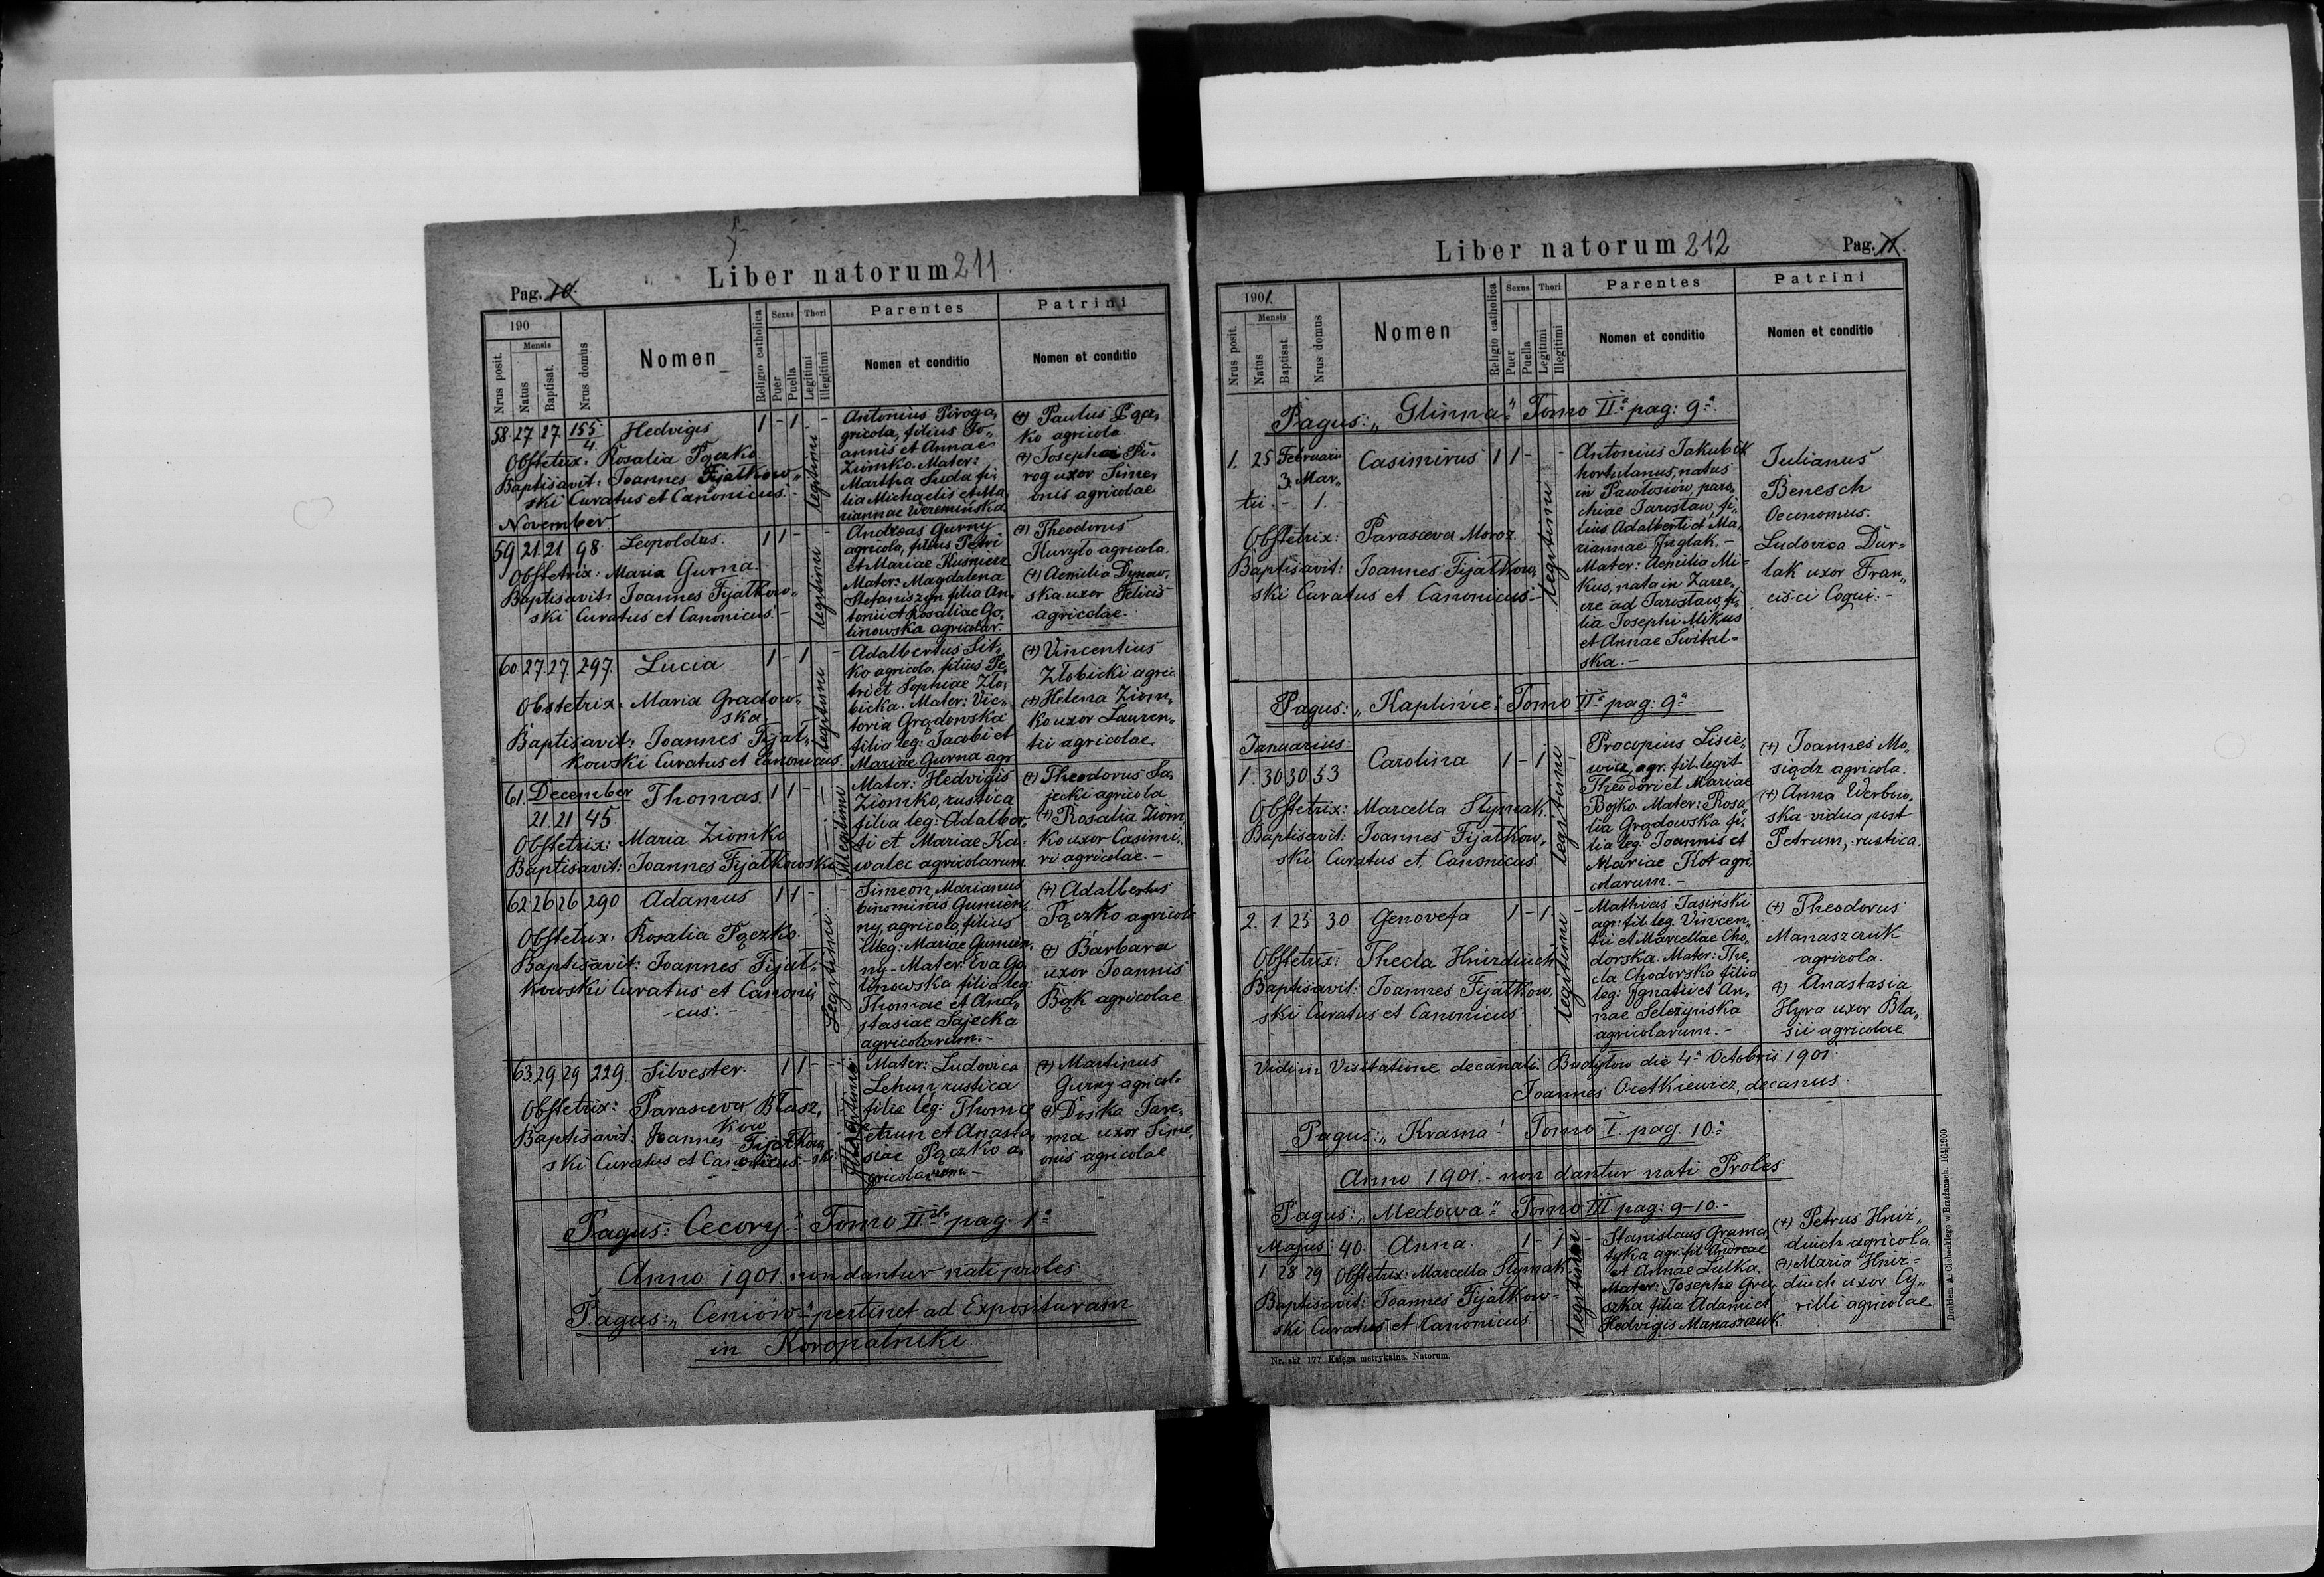 Pag. 10.
Liber natorum 211.
190
Nrus posit.
Mensis
Natus
Baptisat.
Nrus domus
Nomen
Religio catholica
Sexus
Puer
Puella
Thori
Legitimi
Illegitimi
Parentes
Nomen et conditio
Patrini
Nomen et conditio
58. 27 27 155/4 Hedvigis 1 - 1 -
Obstetrix: Rosalia Pączko
Baptisavit: Joannes Fijałkow„
ski Curatus et Canonicus.
legitimi
Antonius Piroga,
gricola, filius Jo„
annis et Annae
Ziomko. Mater:
Martha Suda fi„
lia Michaelis et Ma„
riannae Weremińska
(+) Paulus
ko agricola
(+) Josepha Pi„
rog uxor Sime„
onis agricolae
November
59 21. 21 98. Leopoldus. 1 1 -
Obstetrix: Maria Gurna.
Baptisavit: Joannes Fijałkow„
ski Curatus et Canonicus. -
legitimi
Andreas Gurny
agricola, filius Petri
et Mariae Kuśnierz
Mater: Magdalena
Stefaniszyn filia An„
tonii et Rosaliae Go„
linowska agricolar.
(+) Theodorus
Kuryło agricola.
(+) Aemilia Dynow„
ska uxor Felicis
agricolae.
60. 27. 27. 297. Lucia 1 - 1 -
Obstetrix: Maria Gradow„
ska
Baptisavit: Joannes Fijał„
kowski Curatus et Canonicus.
legitimi
Adalbertus Sit„
ko agricola, filius Pe„
tri et Sophiae Zło„
bicka. Mater: Vic„
toria Grądowska
filia leg: Jacobi et
Mariae Gurna agr.
(+) Vincentius
Złobicki agric.
(+) Helena Ziom„
ko uxor Lauren„
tii agricolae.
61. December Thomas. 1 1 -
21. 21 45.
Obstetrix: Maria Ziomko
Baptisavit: Joannes Fijałkowski
Illegitimi
Mater: Hedvigis
Ziomko, rustica
filia leg: Adalber„
ti et Mariae Ka„
walec agricolarum.
(+) Theodorus Sa„
jecki agricola
(+) Rosalia Ziom„
ko uxor Casimi„
ri agricolae. -
62 26 26 290 Adamus 1 1 -
Obstetrix: Rosalia Pączko.
Baptisavit: Joannes Fijał„
kowski Curatus et Canoni„
cus. -
Legitimi
Simeon, Marianus
binominis Gumien„
ny, agricola, filius
illeg: Mariae Gumien„
ny - Mater: Eva Go„
linowska filia leg:
Thomae et Ana„
stasiae Sajecka
agricolarum. -
(+) Adalbertus
Pączko agricola
(+) Barbara
uxor Joannis
Bąk agricolae
63. 29 29 229. Silvester. 1 1 -
Obstetrix: Parasceva Błasz„
kow
Baptisavit: Joannes Fijałkow„
ski Curatus et Canonicus - ski
Illegitimi
Mater: Ludovica
rustica
filia leg: Thomae
et Anasta„
siae Pączko a„
gricolarum -
(+) Martinus
Gurny agricola
(+) Doska Jare„
ma uxor Sime„
onis agricolae
Pagus: Cecory" Tomo II pag. 1ᵃ
Anno 1901 non dantur nati proles
Pagus: „Ceniów" pertinet ad Exposituram
in Koropatniki
Liber natorum 212
Pag. 11.
1901.
Nrus posit.
Mensis
Natus
Baptisat.
Nrus domus
Nomen
Religio catholica
Sexus
Puer
Puella
Thori
Legitimi
Illegitimi
Parentes
Nomen et conditio
Patrini
Nomen et conditio
Pagus: „Glinna" Tomo IIᵒ pag: 9ᵃ.
1. 25 Februarii Casimirus 1 1 - -
3. Mar„
tii - 1.
Obstetrix: Parasceva Moroz.
Baptisavit: Joannes Fijałkow„
ski Curatus et Canonicus -
legitimi
Antonius Jakubik
hortulanus, natus
in Pawłosiów, paro„
chiae Jarosław, fi„
lius Adalberti et Ma„
riannae Inglak. -
Mater: Aemilia Mi„
kus, nata in Zarze„
cze ad Jarosław, fi„
lia Josephi Mikus
et Annae Switał=
ska. -
Julianus
Benesch
Oeconomus.
Ludovica Dur=
lak uxor Fran„
cisci Coqui. -
Pagus: „Kaplińce" Tomo IIᵒ pag. 9ᵃ.
Januarius
1. 30 30 53 Carolina 1 - 1 -
Obstetrix: Marcella Słymak.
Baptisavit: Joannes Fijałkow„
ski Curatus et Canonicus.
legitimi
Procopius Lisie„
wicz, agr. fil. legit
Theodori et Mariae
Bojko Mater: Rosa„
lia Grądowska fi„
lia leg: Joannis et
Mariae Kot agri„
colarum. -
(+) Joannes Mo„
siądz agricola.
(+) Anna Werbow„
ska vidua post
Petrum, rustica.
2. 1 25 30 Genovefa 1 - 1 -
Obstetrix: Thecla Hnizdiuch
Baptisavit: Joannes Fijałkow„
ski Curatus et Canonicus.
legitimi
Mathias Jasiński
agr: fil. leg. Vincen„
tii et Marcellae Cho„
dorska. Mater: The„
cla Chodorska filia
leg: Ignatii et An„
nae Seleżyńska
agricolarum. -
(+) Theodorus
Manaszczuk
agricola.
(+) Anastasia
Hyra uxor Bla„
sii agricolae.
Vidi in Visitatione decanali. Budyłów die 4ᵃ Octobris 1901.
Joannes Ocetkiewicz, decanus.
Pagus: „Krasna" Tomo I. pag. 10.ᵃ
Anno 1901. - non dantur nati Proles
Pagus: „Medowa" Tomo III pag: 9-10. -
Majus: 40. Anna. 1 - 1 -
1 28 29 Obstetrix: Marcella Słymak
Baptisavit: Joannes Fijałkow=
ski Curatus et Canonicus.
legitimi
Stanislaus Grama„
tyka agr. fil. Andreae
et Annae Lulka.
Mater: Josepha Gru„
szka filia Adami et
Hedvigis Manaszczuk.
(+) Petrus Hniz„
diuch agricola.
(+) Maria Hniz=
diuch uxor Cy„
rilli agricolae.
Nr. skł. 177 Księga metrykalna. Natorum.
Drukiem A. Ciehockiego w Brzeżanach. 164|1900.